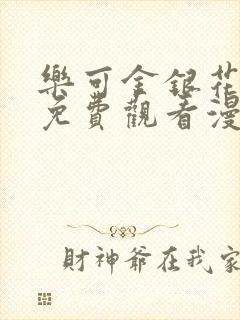 樂可金銀花
免費觀看漫
財神爺在我家